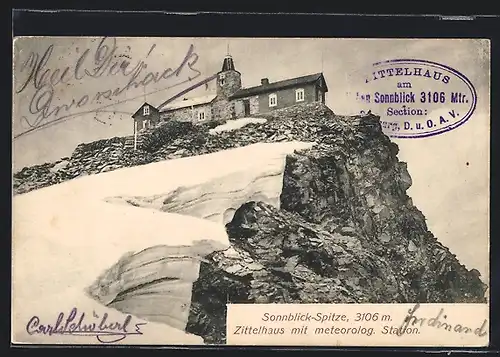 Heil Dir!
Dworschack
ZITTELHAUS
am
Sonnblick 3106 Mtr.
Section:
D. u. O. A. V.
Sonnblick-Spitze, 3106 m.
Zittelhaus mit meteorolog. Station.
Carl Schöberl
Ferdinand